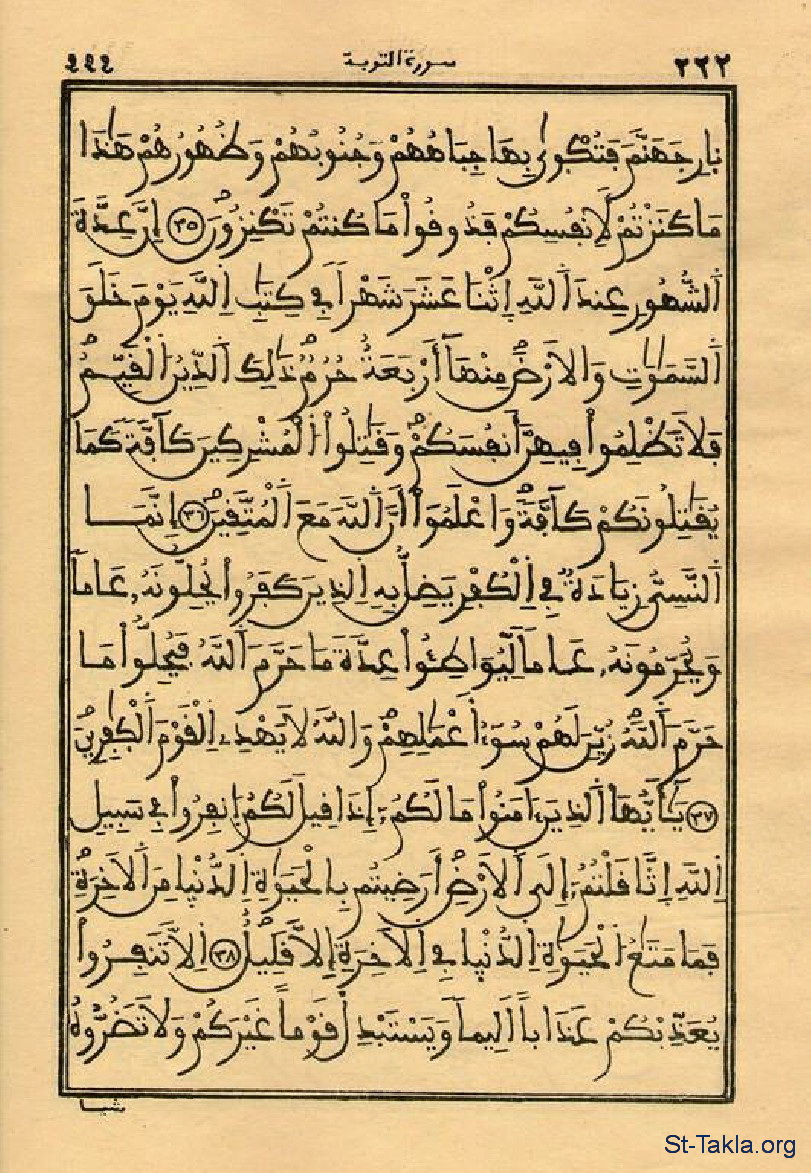 ٢٢٢ سورة التوبة ٤٤٤
نارِ جَهَنَّمَ فَتُكْوٜىٰ بِهَا جِبَاهُهُمْ وَجُنُوبُهُمْ وَظُهُورُهُمْ هَٰذَا
مَا كَنَزْتُمْ لِأَنفُسِكُمْ فَذُوقُواْ مَا كُنتُمْ تَكْنِزُونَ ٣٥ إِنَّ عِدَّةَ
اَ۬لشُّهُورِ عِندَ اَ۬للَّهِ اِ۪ثْنَا عَشَرَ شَهْراً فِي كِتَٰبِ اِ۬للَّهِ يَوْمَ خَلَقَ
اَ۬لسَّمَٰوَٰتِ وَالَارْضَ مِنْهَآ أَرْبَعَةٌ حُرُمٌ ذَٰلِكَ اَ۬لدِّينُ اُ۬لْقَيِّمُ
فَلَا تَظْلِمُواْ فِيهِنَّ أَنفُسَكُمْ وَقَٰتِلُواْ اُ۬لْمُشْرِكِينَ كَآفَّةً كَمَا
يُقَٰتِلُونَكُمْ كَآفَّةً وَاعْلَمُوٓاْ أَنَّ اَ۬للَّهَ مَعَ اَ۬لْمُتَّقِينَ ٣٦ إِنَّمَا
اَ۬لنَّسِيُّ زِيَادَةٌ فِي اِ۬لْكُفْرِ يَضِلُّ بِهِ اِ۬لذِينَ كَفَرُواْ يُحِلُّونَهُۥ عَاماً
وَيُحَرِّمُونَهُۥ عَاماً لِّيُوَاطِـُٔواْ عِدَّةَ مَا حَرَّمَ اَ۬للَّهُ فَيُحِلُّواْ مَا
حَرَّمَ اَ۬للَّهُ زُيِّنَ لَهُمْ سُوٓءُ أَعْمَٰلِهِمْ وَاللَّهُ لَا يَهْدِے اِ۬لْقَوْمَ اَ۬لْكَٰفِرِينَ
٣٧ يَٰٓأَيُّهَا اَ۬لذِينَ ءَامَنُواْ مَا لَكُمُۥٓ إِذَا قِيلَ لَكُمُ اُ۪نفِرُواْ فِي سَبِيلِ
اِ۬للَّهِ اِ۪ثَّاقَلْتُمُۥٓ إِلَى اَ۬لَارْضِ أَرَضِيتُم بِالْحَيَوٰةِ اِ۬لدُّنْيَا مِنَ اَ۬لَاخِرَةِ
فَمَا مَتَٰعُ اُ۬لْحَيَوٰةِ اِ۬لدُّنْيَا فِي اِ۬لَاخِرَةِ إِلَّا قَلِيلٌ ٣٨ اِلَّا تَنفِرُواْ
يُعَذِّبْكُمْ عَذَاباً أَلِيماً وَيَسْتَبْدِلْ قَوْماً غَيْرَكُمْ وَلَا تَضُرُّوهُ
شيئا
St-Takla.org